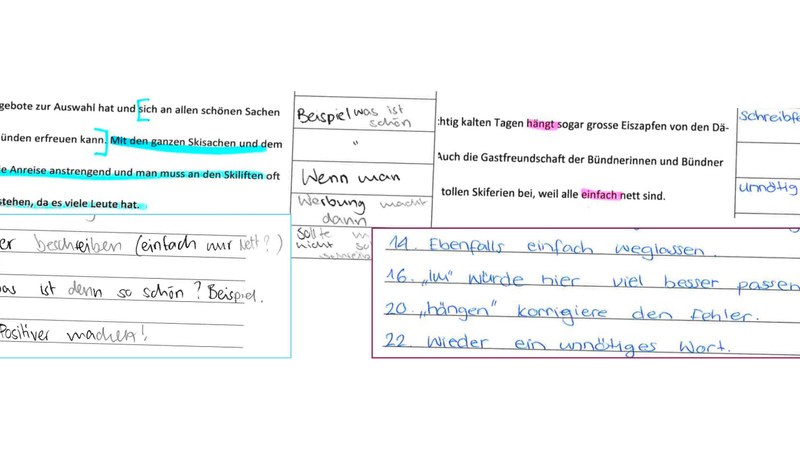 gebote zur Auswahl hat und sich an allen schönen Sachen
ünden erfreuen kann. Mit den ganzen Skisachen und dem
e Anreise anstrengend und man muss an den Skiliften oft
stehen, da es viele Leute hat.
Beispiel was ist
schön
"
Wenn man
Werbung macht
dann
sollte
nicht so
er beschreiben (einfach nur nett?)
as ist denn so schön? Beispiel.
Positiver machen!
chtig kalten Tagen hängt sogar grosse Eiszapfen von den Dä-
Auch die Gastfreundschaft der Bündnerinnen und Bündner
tollen Skiferien bei, weil alle einfach nett sind.
schreibfe
unnötig
14. Ebenfalls einfach weglassen.
16. „Im" würde hier viel besser passen
20. „hängen" korrigiere den Fehler.
22. Wieder ein unnötiges Wort.